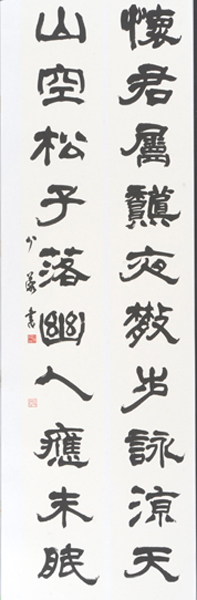 懷君屬龝夜散步詠涼天
山空松子落幽人應未眠
書